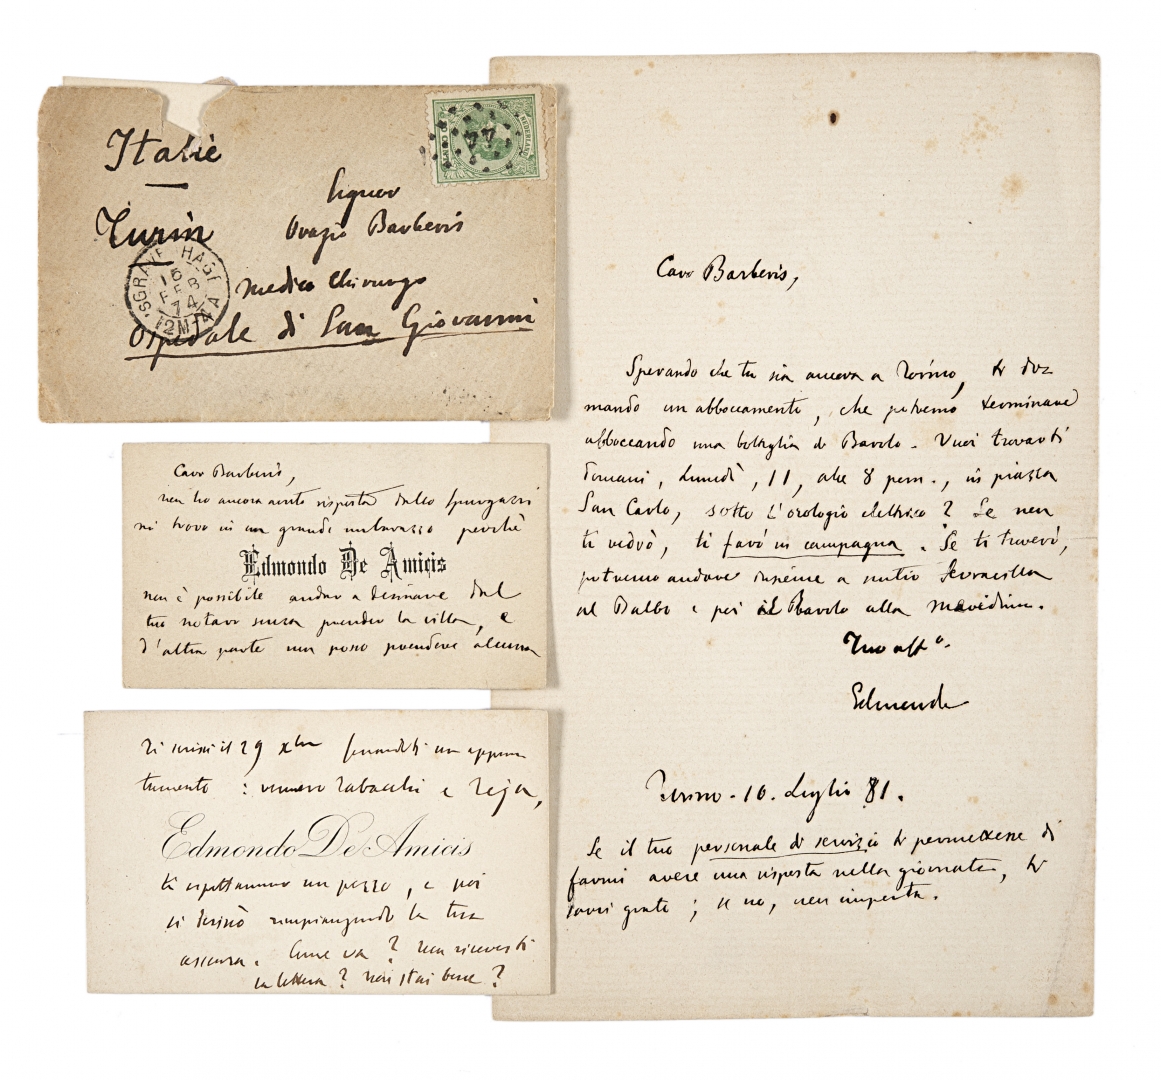 Italie
Turin
Signor
Orazio Barberis
Medico Chirurgo
Ospedale di San Giovanni
NEDERLAND
20 CENTS
44
'SGRAVENHAGE
15
FEB
74
12M-4A
Caro Barberis,
non ho ancora avuto risposta dallo Spurgazzi
mi trovo in un grande imbarazzo perchè
Edmondo De Amicis
non è possibile andar a desinare dal
tuo notaro senza prender la villa, e
d'altra parte non posso prendere alcuna
Ti scrissi il 29 Xbre dandoti un appun
tamento: vennero Tabacchi e Teja,
Edmondo De Amicis
ti aspettammo un pezzo, e poi
si desinò rimpiangendo la tua
assenza. Come va? Non ricevesti
la lettera? Non stai bene?
Caro Barberis,
Sperando che tu sia ancora a Torino, ti do=
mando un abboccamento, che potremo terminare
abboccando una bottiglia di Barolo. Vuoi trovarti
domani, lunedì, 11, alle 8 pom., in piazza
San Carlo, sotto l'orologio elettrico? Se non
ti vedrò, ti farò in campagna. Se ti troverò,
potremo andare insieme a
al Balbo e poi il Barolo alla
Tuo aff°.
Edmondo
Torino - 10. Luglio 81.
Se il tuo personale di servizio ti permettesse di
farmi avere una risposta nella giornata, ti
sarei grato; se no, non importa.